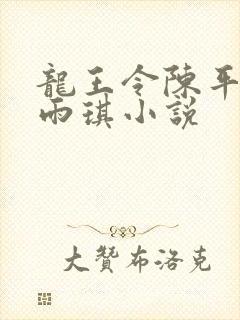 龍王令陳平
雨琪小說
大贊布洛克